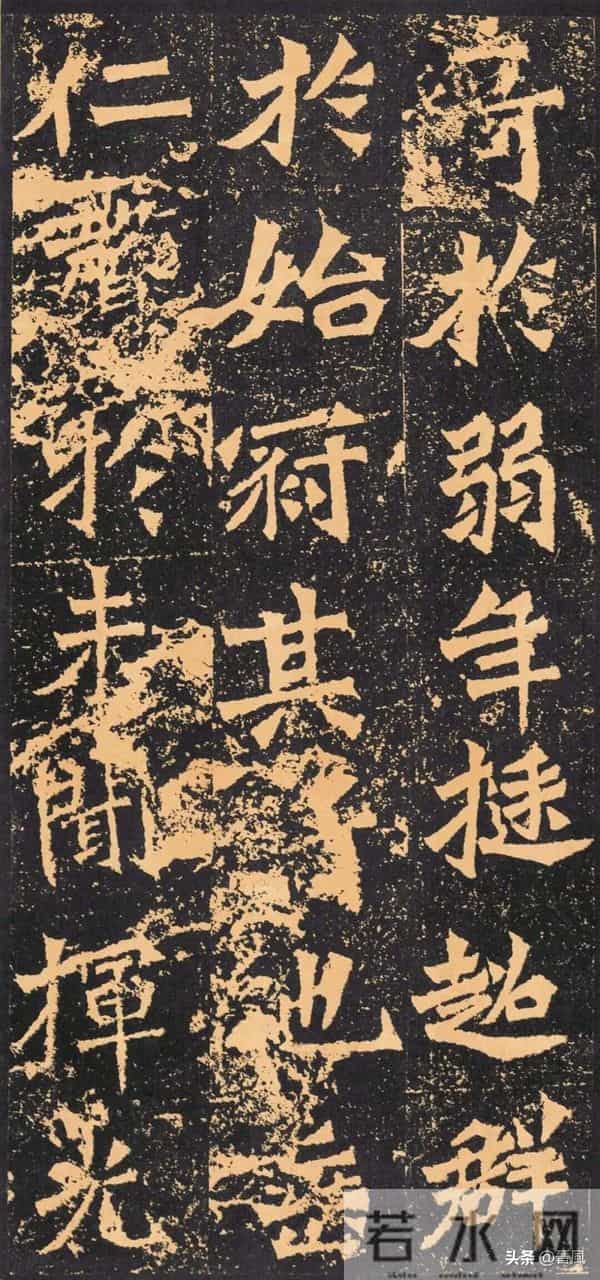 奇於弱年挺超群
於始冠其也
仁於未聞揮光
若水网
头条 @青風